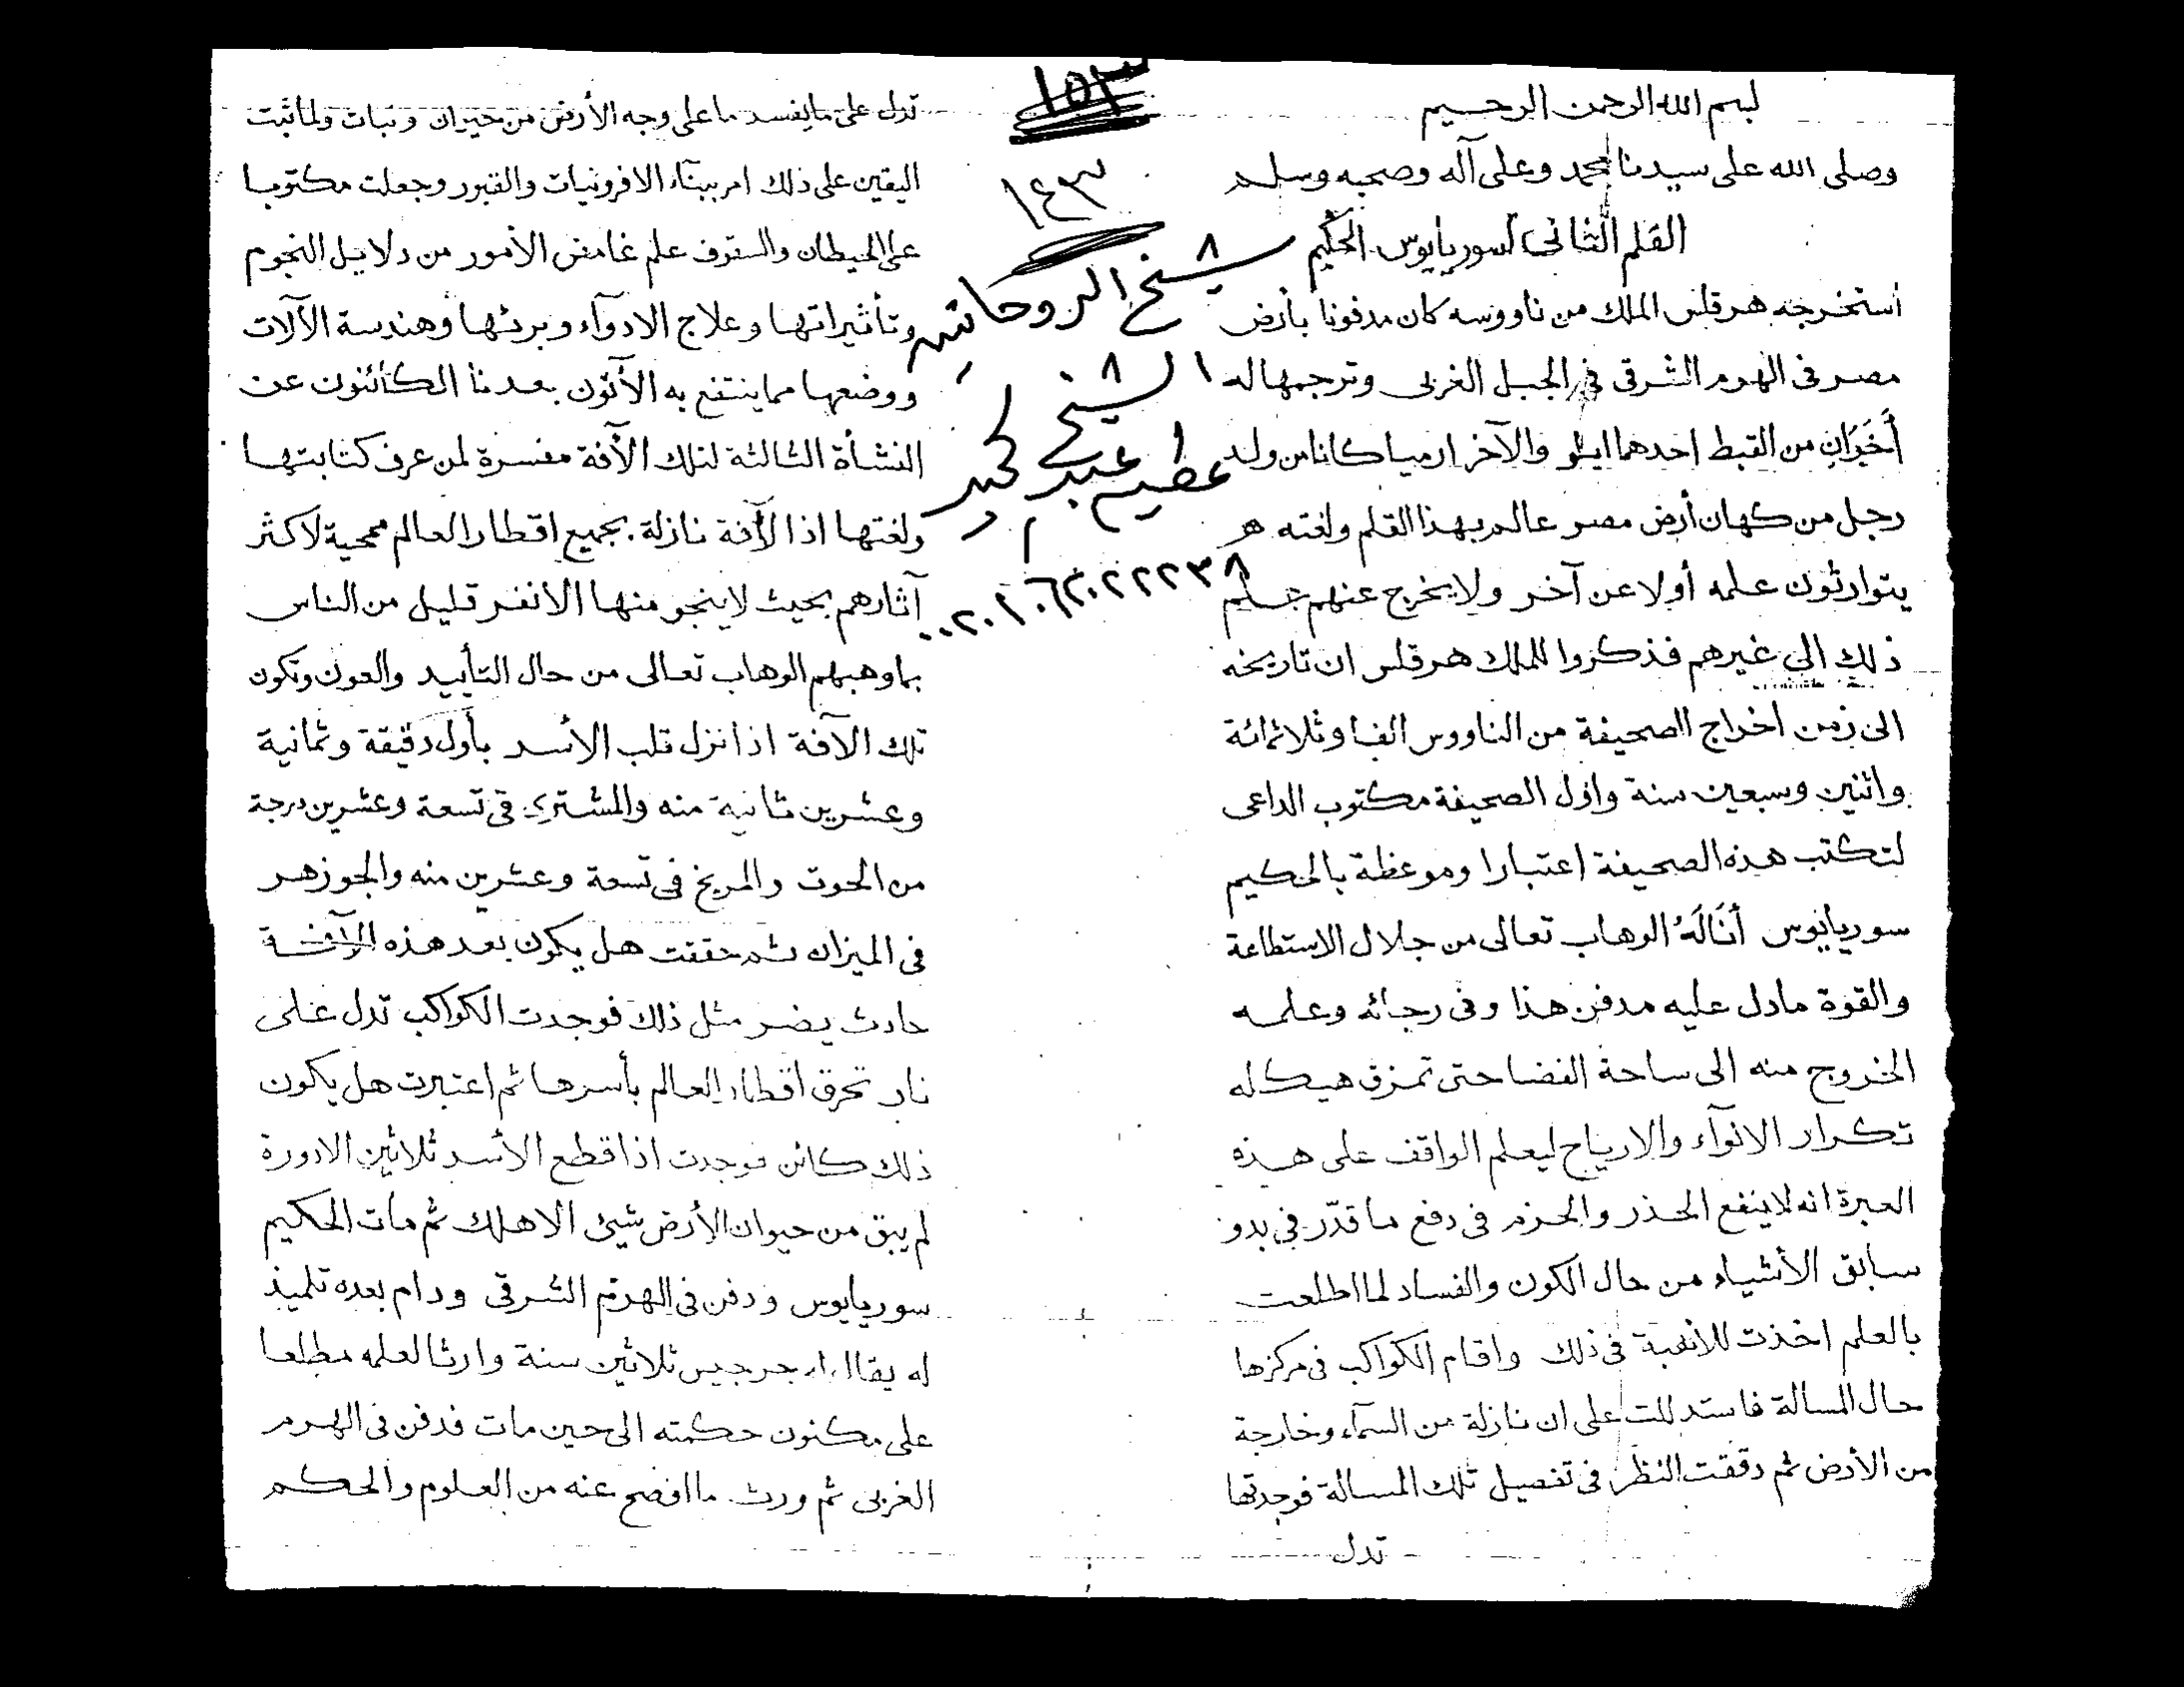 بسم الله الرحمن الرحيم
وصلى الله على سيدنا محمد وعلى آله وصحبه وسلم
القلم الثانى لسوريايوس الحكيم
استخرجه هرقلس الملك من ناووسه كان مدفونا بأرض
مصر فى الهرم الشرقى فى الجبل الغربى وترجمها له
أَخَوَانِ من القبط احدهما ايلو والآخر ارميا كانا من ولد
رجل من كهان أرض مصر عالم بهذا القلم ولغته
يتوارثون علمه أولا عن آخر ولا يخرج عنهم علم
ذلك الى غيرهم فذكروا للملك هرقلس ان تاريخه
الى زمن اخراج الصحيفة من الناووس الفا وثلاثمائة
واثنين وسبعين سنة واول الصحيفة مكتوب الداعى
لتكتب هذه الصحيفة اعتبارا وموعظة بالحكيم
سوريايوس أَنَالَهُ الوهاب تعالى من جلال الاستطاعة
والقوة مادل عليه مدفن هذا وفى رجائه وعلمه
الخروج منه الى ساحة الفضا حتى تمزق هيكله
تكرار الانوآء والارياح ليعلم الواقف على هذه
العبرة انه لاينفع الحذر والحزم فى دفع ما قدّر فى بدو
سابق الأشياء من حال الكون والفساد لما اطلعت
بالعلم اخذت للأهبة فى ذلك واقام الكواكب فى مركزها
حال المسالة فاستدللت على ان نازلة من السمآء وخارجة
من الأرض ثم دققت النظر فى تفصيل تلك المسالة فوجدتها
تدل
١٥٣
١٤٣
شيخ الروحانيين
الشيخ
عبد
عظيم
٠٠٢٠١٠٦٢٠٢٢٢٣٨
تدل على مايفسد ما على وجه الأرض من حيوان ونبات ولما ثبت
اليقين على ذلك امر ببنآء الافرونيات والقبور وجعلت مكتوبا
على الحيطان والسقوف علم غامض الأمور من دلايل النجوم
وتأثيراتها وعلاج الادوآء وبرئها وهندسة الآلات
ووضعها مما ينتفع به الآتون بعدنا الكائنون عن
النشأة الثالثة لتلك الآفة مفسرة لمن عرف كتابتها
ولغتها اذا الآفة نازلة بجميع اقطار العالم ممحية لاكثر
آثارهم بحيث لاينجو منها الا نفر قليل من الناس
بما وهبهم الوهاب تعالى من حال التأييد والعون وتكون
تلك الآفة اذا نزل قلب الأسد بأول دقيقة وثمانية
وعشرين ثانية منه والمشترى فى تسعة وعشرين درجة
من الحوت والمريخ فى تسعة وعشرين منه والجوزهر
فى الميزان ثم حققت هل يكون بعد هذه الآفة
حادث يضر مثل ذلك فوجدت الكواكب تدل على
نار تحرق اقطار العالم بأسرها ثم اعتبرت هل يكون
ذلك كائن فوجدت اذا قطع الأسد ثلاثين الادورة
لم يبق من حيوان الأرض شيئ الا هلك ثم مات الحكيم
سوريايوس ودفن فى الهرم الشرقى ودام بعده تلميذ
له يقال له جرجيس ثلاثين سنة وارثا لعلمه مطلعا
على مكنون حكمته الى حين مات فدفن فى الهرم
الغربى ثم ورث ما افصح عنه من العلوم والحكم